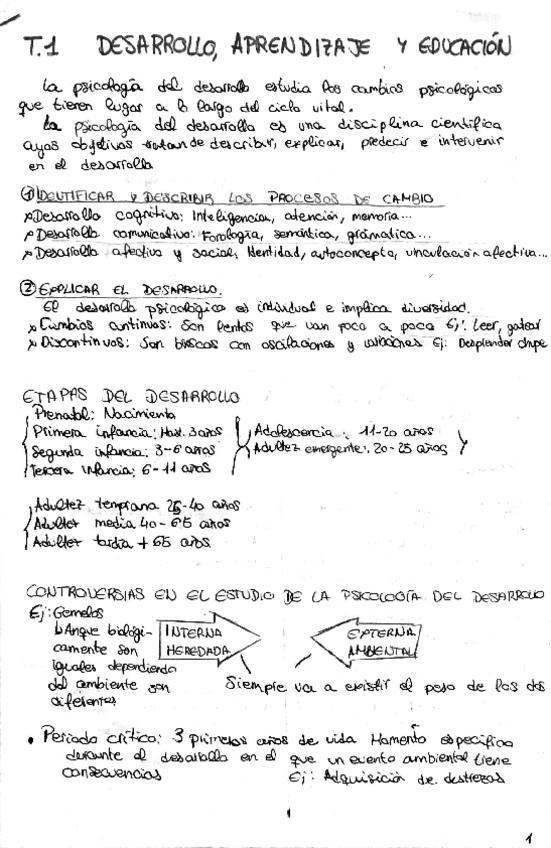 T.1 DESARROLLO, APRENDIZAJE Y EDUCACIÓN
La psicología del desarrollo estudia los cambios psicológicos
que tienen lugar a lo largo del ciclo vital.
La psicología del desarrollo es una disciplina científica
cuyos objetivos tratan de describir, explicar, predecir e intervenir
en el desarrollo
① IDENTIFICAR Y DESCRIBIR LOS PROCESOS DE CAMBIO
Desarrollo cognitivo: Inteligencia, atención, memoria...
Desarrollo comunicativo: Fonología, semántica, gramática...
Desarrollo afectivo y social: Identidad, autoconcepto, vinculación afectiva...
② EXPLICAR EL DESARROLLO.
El desarrollo psicológico es individual e implica diversidad.
Cambios continuos: Son lentos que van poco a poco Ej: Leer, gatear
Discontinuos: Son bruscos con oscilaciones y variaciones Ej:
ETAPAS DEL DESARROLLO
Prenatal: Nacimiento
Primera infancia: Hast. 3 años
Segunda infancia: 3-6 años
Tercera infancia: 6-11 años
Adolescencia: 11-20 años
Adultez emergente: 20-25 años
Adultez temprana 25-40 años
Adultez media 40-65 años
Adultez tardía + 65 años
CONTROVERSIAS EN EL ESTUDIO DE LA PSICOLOGÍA DEL DESARROLLO
Ej: Gemelos
Anque biologi-
camente son
iguales dependiendo
del ambiente son
diferentes
INTERNA
HEREDADA
EXTERNA
AMBIENTAL
Siempre va a existir el peso de los dos
• Periodo crítico: 3 primeros años de vida Momento específico
durante el desarrollo en el que un evento ambiental tiene
consecuencias Ej: Adquisición de destrezas
1